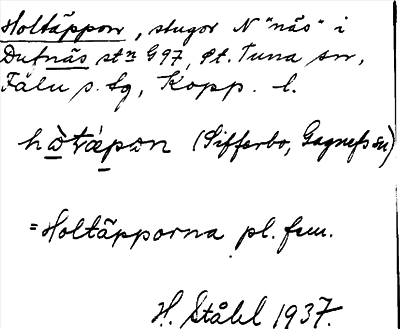 Holtäppon, stugor N "näs" i
Dufnäs stn G97, St. Tuna sn,
Falu s. tg, Kopp. l.
hòtǽpon (Sifferbo, Gagnefs sn)
=Holtäpporna pl. fem.
H. Ståhl 1937.